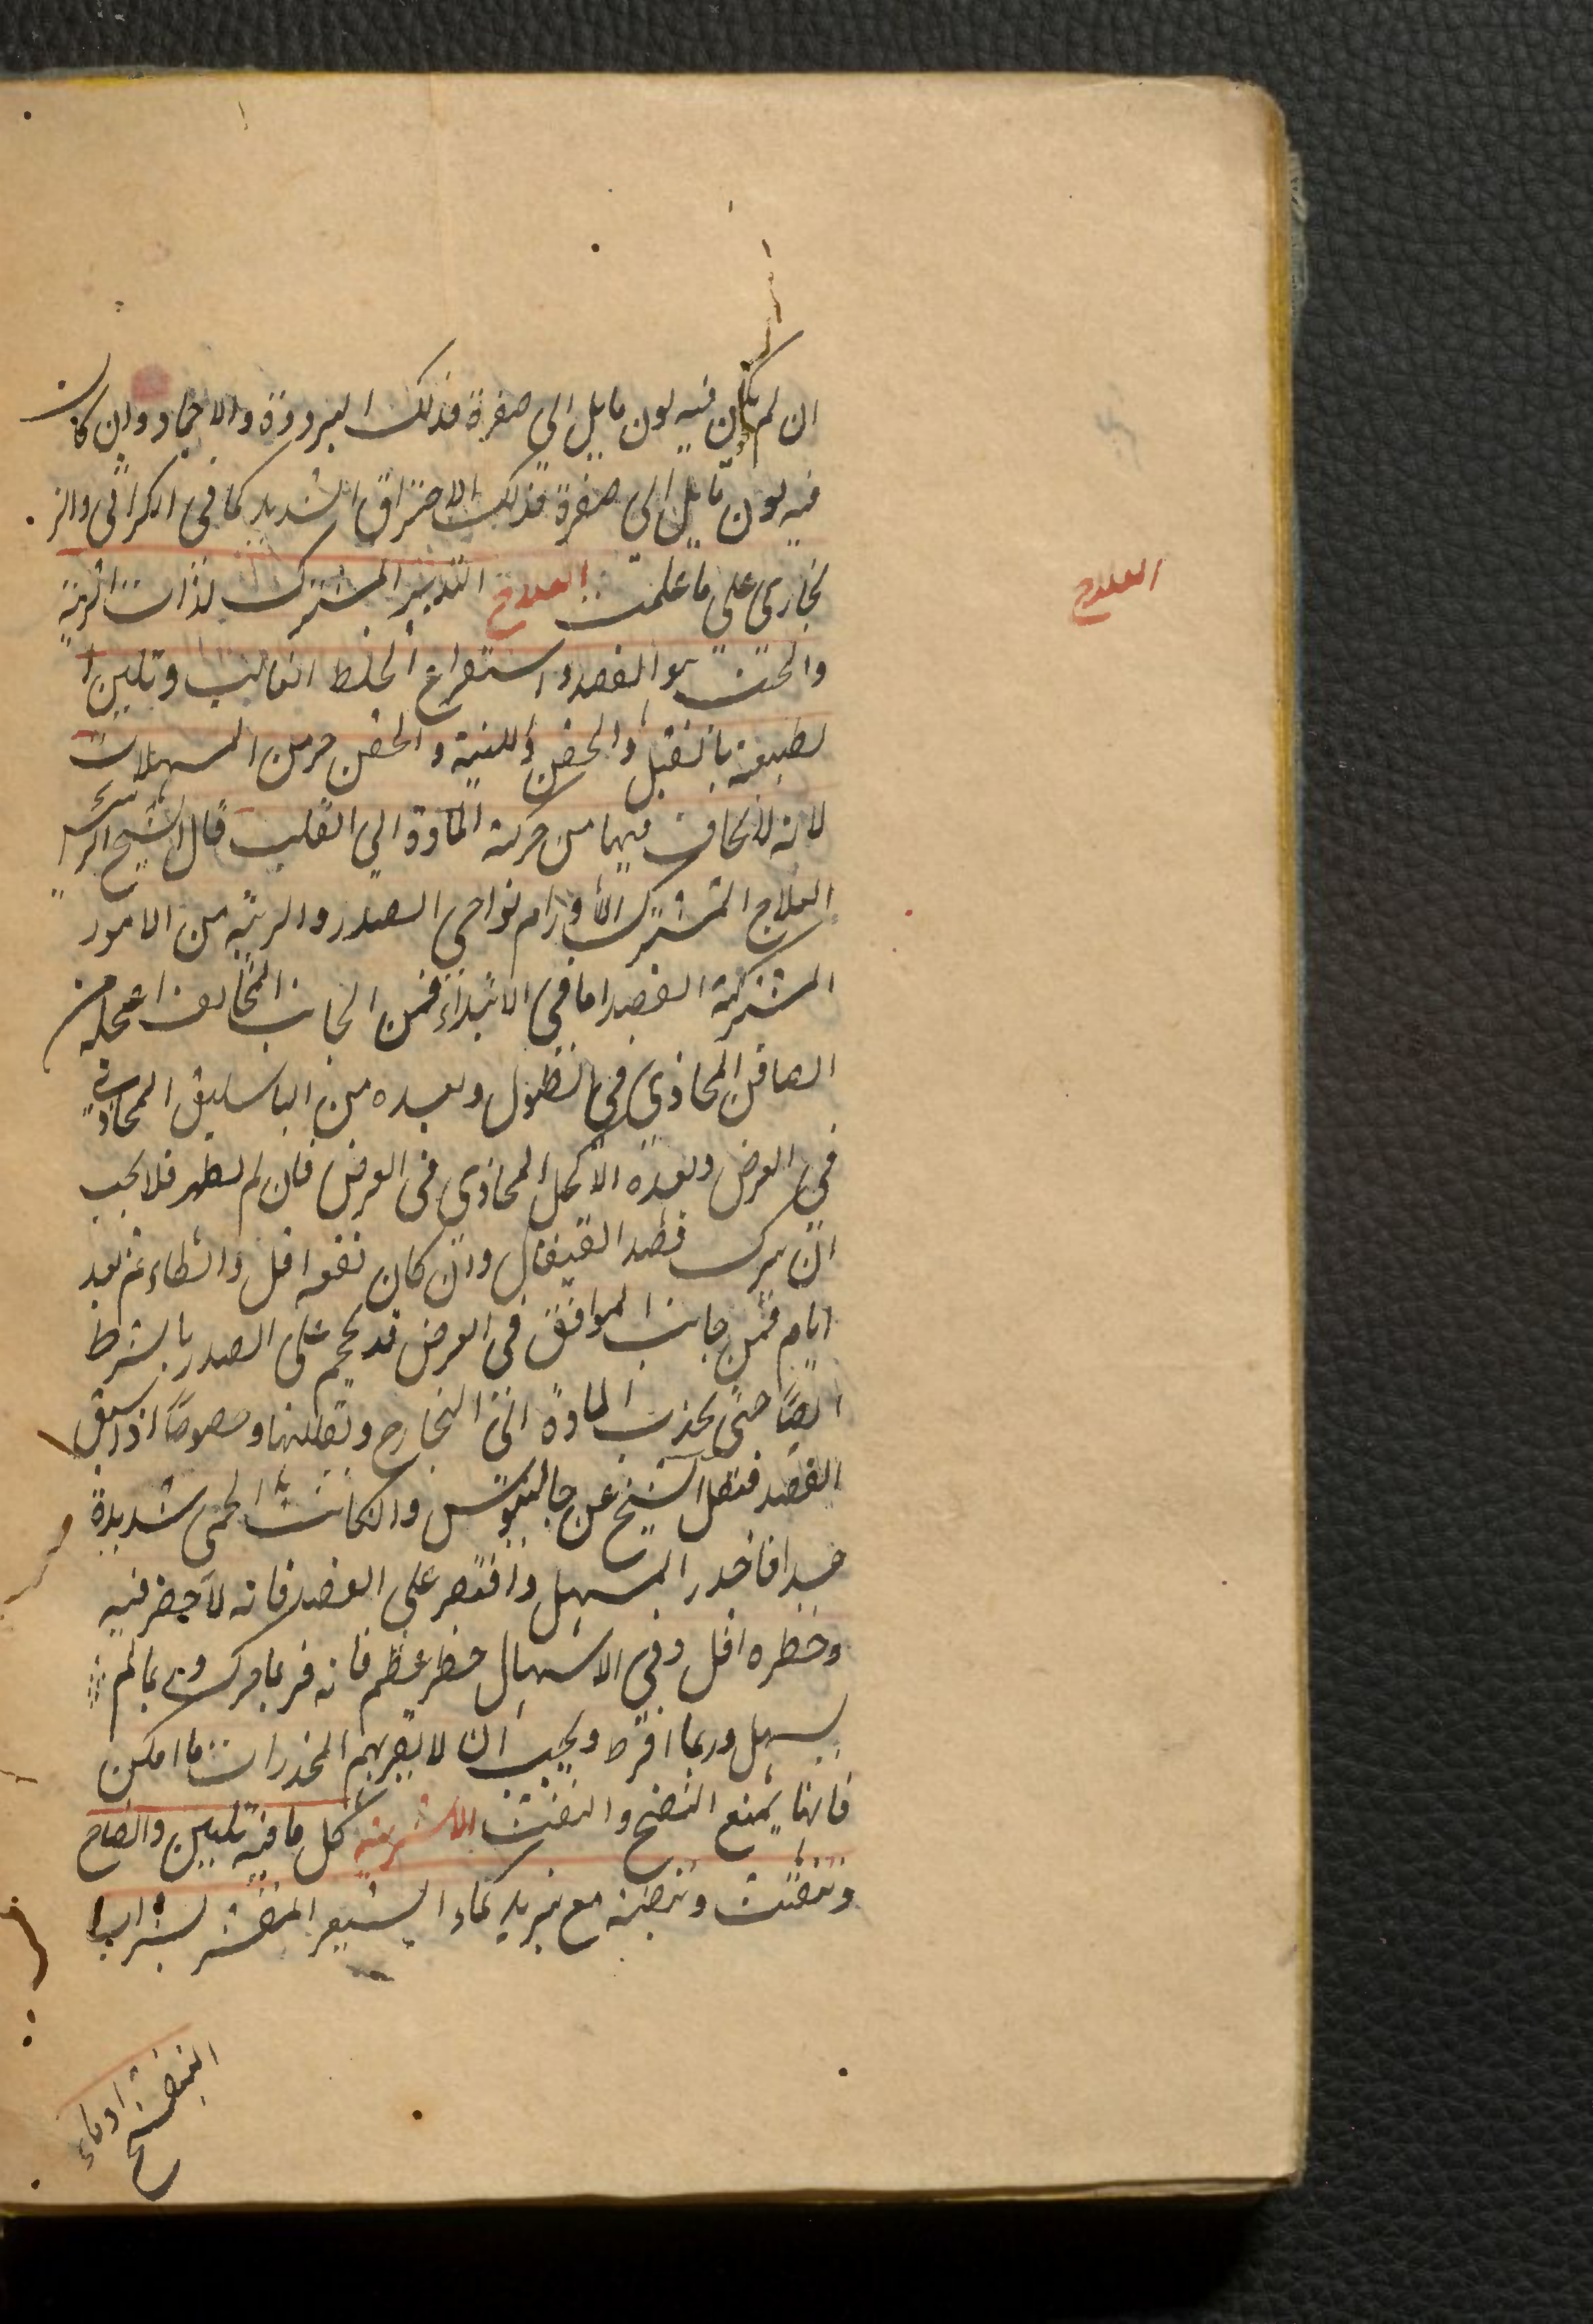 ان لم يكن فيه لون مايل الي صفرة فذلك البرودة والاجماد وان كان
فيه لون مايل الى صفرة فذلك الاحتراق الشديد كما في الكراثى والز
نجارى على ما علمت العلاج التدبير المشترك لذات الرية
العلاج
والجنب هو الفصد و استفراغ الخلط الغالب وتليين ا
لطبيعة بالفتيل والحقن اللينة والحقن خير من المسهلات
لانه لا يخاف فيها من حركة المادة الي القلب قال الشيخ الرئيس
العلاج المشترك لأورام نواحي الصدر والرية من الامور
المشتركة الفصد اما في الابتداء فمن الجانب المخالف اعجله من
الصافن المحاذي في الطول وبعده من الباسليق المحاذي
في العرض وبعده الاكحل المحاذي في العرض فان لم يظهر فلا يجب
ان يترك فصد القيفال وان كان نفعه اقل وابطاء ثم بعد
ايام فمن جانب الموافق في العرض قد يحجم على الصدر بالشرط
ايضًا حتى يجذب المادة الى الخارج وتقللها وخصوصًا اذا سبق
الفصد فنقل الشيخ عن جالينوس وان كانت الحمى شديدة
جدا فاحذر المسهل واقتصر على الفصد فانه لا خطر فيه
وخطره اقل وفي الاسهال خطر عظيم فانه فربما حرك وربما لم
يسهل وربما افرط ويجب ان لا يقربهم المخدرات ما امكن
فانها يمنع النضج والنفث الاشربة كل ما فيه تليين وانضاج
وتنفيث وتنضية مع تبريد كماء الشعير المقشر بشراب
البنفسج او ماء